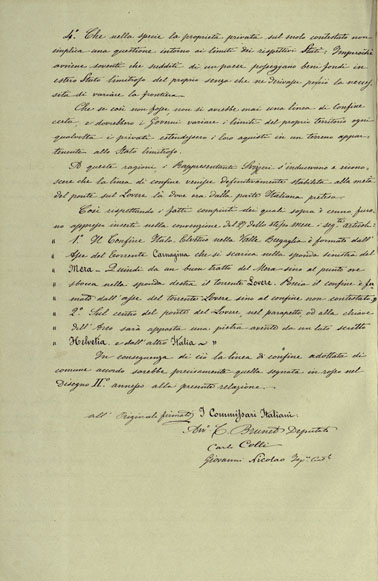 4.° Che nella specie la proprietà privata sul suolo contestato non
implica una questione intorno ai limiti dei rispettivi Stati: Imperocchè
avviene sovente che sudditi di un paese posseggano beni fondi in
estero Stato limitrofo del proprio senza che ne derivi perciò la neces
sità di variare la frontiera.
Che se così non fosse non si avrebbe mai una linea di Confine
certa, e dovrebbero i Governi variare i limiti del proprio territorio ogni
qualvolta i privati estendessero i loro acquisti in un terreno appar
tenente allo Stato limitrofo.
A queste ragioni i Rappresentanti Svizzeri s'indussero a ricono
scere che la linea di confine venisse definitivamente stabilita alla metà
del ponte sul Lovere là dove era dalla parte Italiana pretesa.
Così rispettando i fatti compiuti dei quali sopra è cenno furo
no appresso inseriti nella convenzione del dello stesso mese i seg.ti articoli:
" 1.° Il Confine Italo-Elvetico nella Valle Bregaglia è formato dall'
" Asse del torrente Casnagina che si scarica nella sponda sinistra del
" Mera - Quindi da un buon tratto del Mera sino al punto ove
" sbocca nella sponda destra il torrente Lovere. Poscia il confine è for
" mato dall'asse del torrente Lovere sino al confine non contestato.
" 2.° Sul centro del ponte del Lovere, nel parapetto, od alla chiave
" dell'Arco sarà apposta una pietra avente da un lato scritto
" Helvetia, e dall'altro Italia - "
In conseguenza di ciò la linea di confine adottata di
comune accordo sarebbe precisamente quella segnata in rosso nel
Disegno II.° annesso alla presente relazione.
all'Originale firmati I Commissari Italiani.
C. Brunet Deputato
Carlo Colli
Giovanni Nicolao